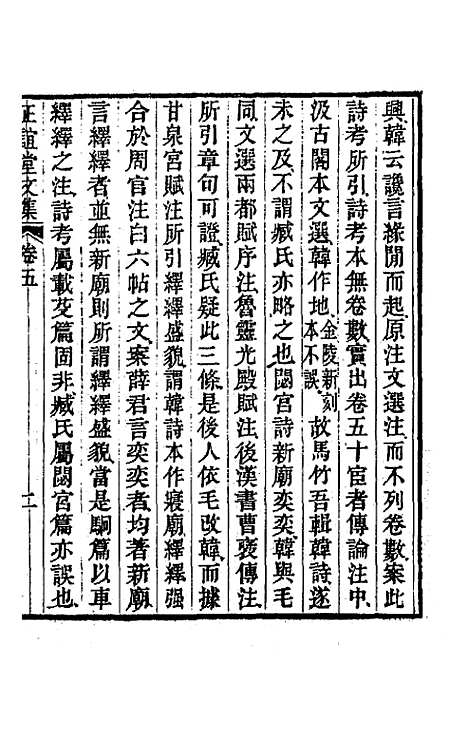 興韓云讒言緣閒而起原注文選注而不列卷數案此
詩考所引詩考本無卷數實出卷五十宦者傳論注中
汲古閣本文選韓作地金陵新刻本不誤故馬竹吾輯韓詩遂
未之及不謂臧氏亦略之也閟宮詩新廟奕奕韓與毛
同文選兩都賦序注魯靈光殿賦注後漢書曹襃傳注
所引章句可證臧氏疑此三條是後人依毛改韓而據
甘泉宮賦注所引繹繹盛貌謂韓詩本作寢廟繹繹强
合於周官注白六帖之文案薛君言奕奕者均著新廟
言繹繹者並無新廟則所謂繹繹盛貌當是駉篇以車
繹繹之注詩考屬載芟篇固非臧氏屬閟宮篇亦誤也
正誼堂文集 卷五 二